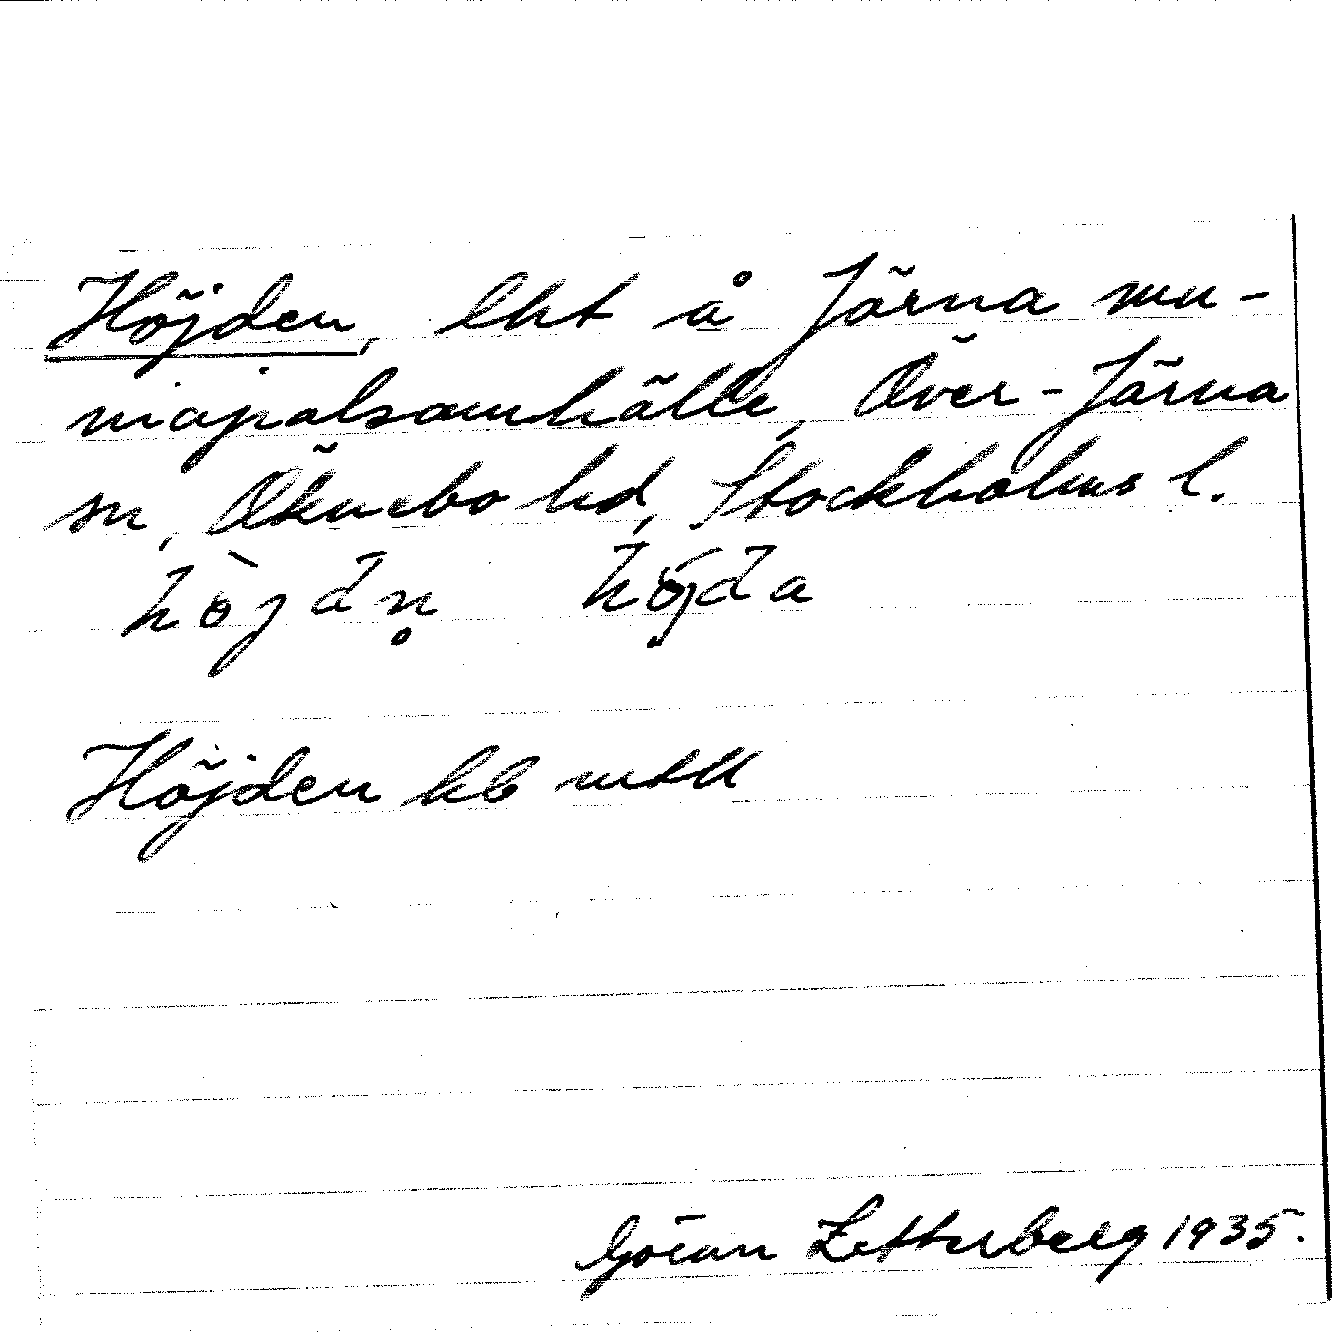 Höjden, lht å Järna mu-
nicipalsamhälle, Över-Järna
sn, Öknebo hd, Stockholms l.
hòjdn̥ höjda
Höjden hb mtll
Göran Zetterberg 1935.